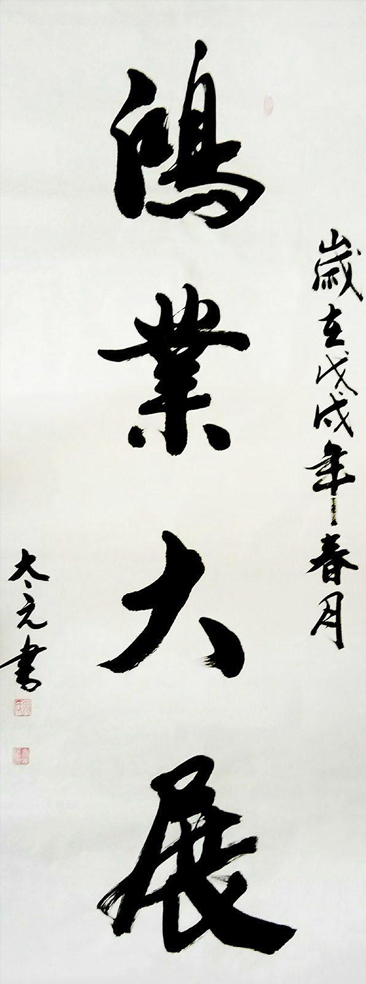 歲在戊戌年春月
鴻業大展
太元書